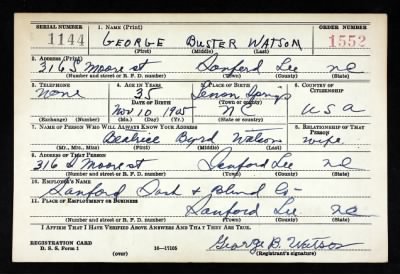 SERIAL NUMBER 1. NAME (Print) ORDER NUMBER
1144 GEORGE BUSTER WATSON 1552
(First) (Middle) (Last)
2. ADDRESS (Print)
316 S Moore st Sanford Lee NC
(Number and street or R. F. D. number) (Town) (County) (State)
3. TELEPHONE 4. AGE IN YEARS 5. PLACE OF BIRTH 6. COUNTRY OF CITIZENSHIP
None 35 Lemon Springs
DATE OF BIRTH (Town or county)
Nov 10 1905 NC USA
(Exchange) (Number) (Mo.) (Day) (Yr.) (State or country)
7. NAME OF PERSON WHO WILL ALWAYS KNOW YOUR ADDRESS 8. RELATIONSHIP OF THAT PERSON
Beatrice Byrd Watson wife
(Mr., Mrs., Miss) (First) (Middle) (Last)
9. ADDRESS OF THAT PERSON
316 S Moore st Sanford Lee NC
(Number and street or R. F. D. number) (Town) (County) (State)
10. EMPLOYER'S NAME
Sanford Sash & Blind Co
11. PLACE OF EMPLOYMENT OR BUSINESS
Sanford Lee NC
(Number and street or R. F. D. number) (Town) (County) (State)
I AFFIRM THAT I HAVE VERIFIED ABOVE ANSWERS AND THAT THEY ARE TRUE.
REGISTRATION CARD George B. Watson
D. S. S. Form 1 16—17105 (Registrant's signature)
(over)